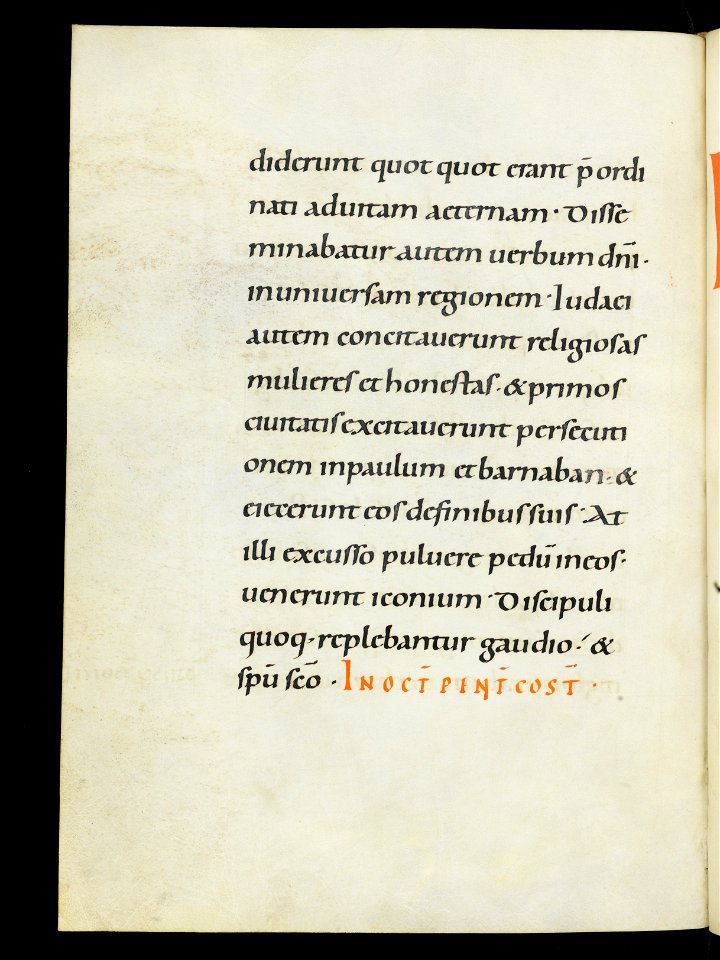 diderunt quot quot erant p̄ordi
nati aduitam aeternam· Disse
minabatur autem uerbum dn̄i·
inuniuersam regionem· Iudaei
autem concitauerunt religiosas
mulieres et honestas· &primos
ciuitatis excitauerunt persecuti
onem inpaulum et barnaban· &
eiecerunt eos definibus suis· At
illi excusso puluere pedū ineos·
uenerunt iconium· Discipuli
quoq· replebantur gaudio· &
sp̄u sc̄o · IN OCT̄ PENTECOST̄ ·